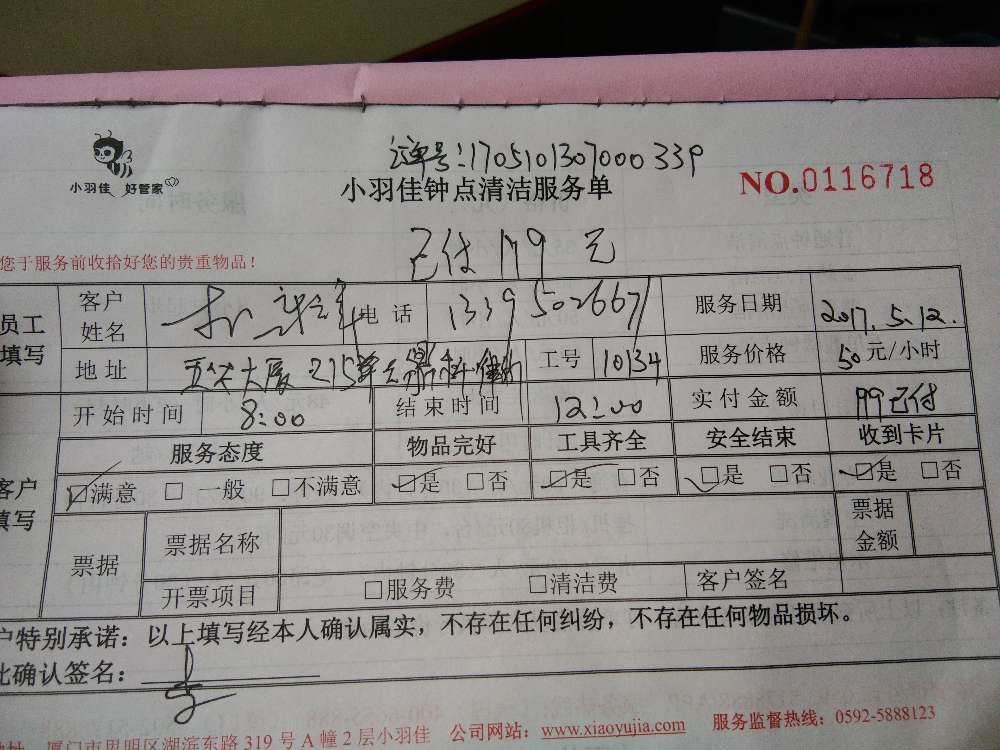 订单号:1705101307000339
小羽佳 好管家
小羽佳钟点清洁服务单
NO.0116718
已付 119 元
您于服务前收拾好您的贵重物品!
员工填写
客户姓名 电话 13395026671 服务日期 2017.5.12.
地址 大厦 215单元 工号 10134 服务价格 50元/小时
开始时间 8:00 结束时间 12:00 实付金额 已付
客户填写
服务态度 物品完好 工具齐全 安全结束 收到卡片
☑满意 □一般 □不满意 ☑是 □否 ☑是 □否 ☑是 □否 ☑是 □否
票据 票据名称 票据金额
开票项目 □服务费 □清洁费 客户签名
户特别承诺:以上填写经本人确认属实,不存在任何纠纷,不存在任何物品损坏。
此确认签名:
地址 厦门市思明区湖滨东路 319 号 A 幢 2 层小羽佳 公司网站:www.xiaoyujia.com 服务监督热线:0592-5888123